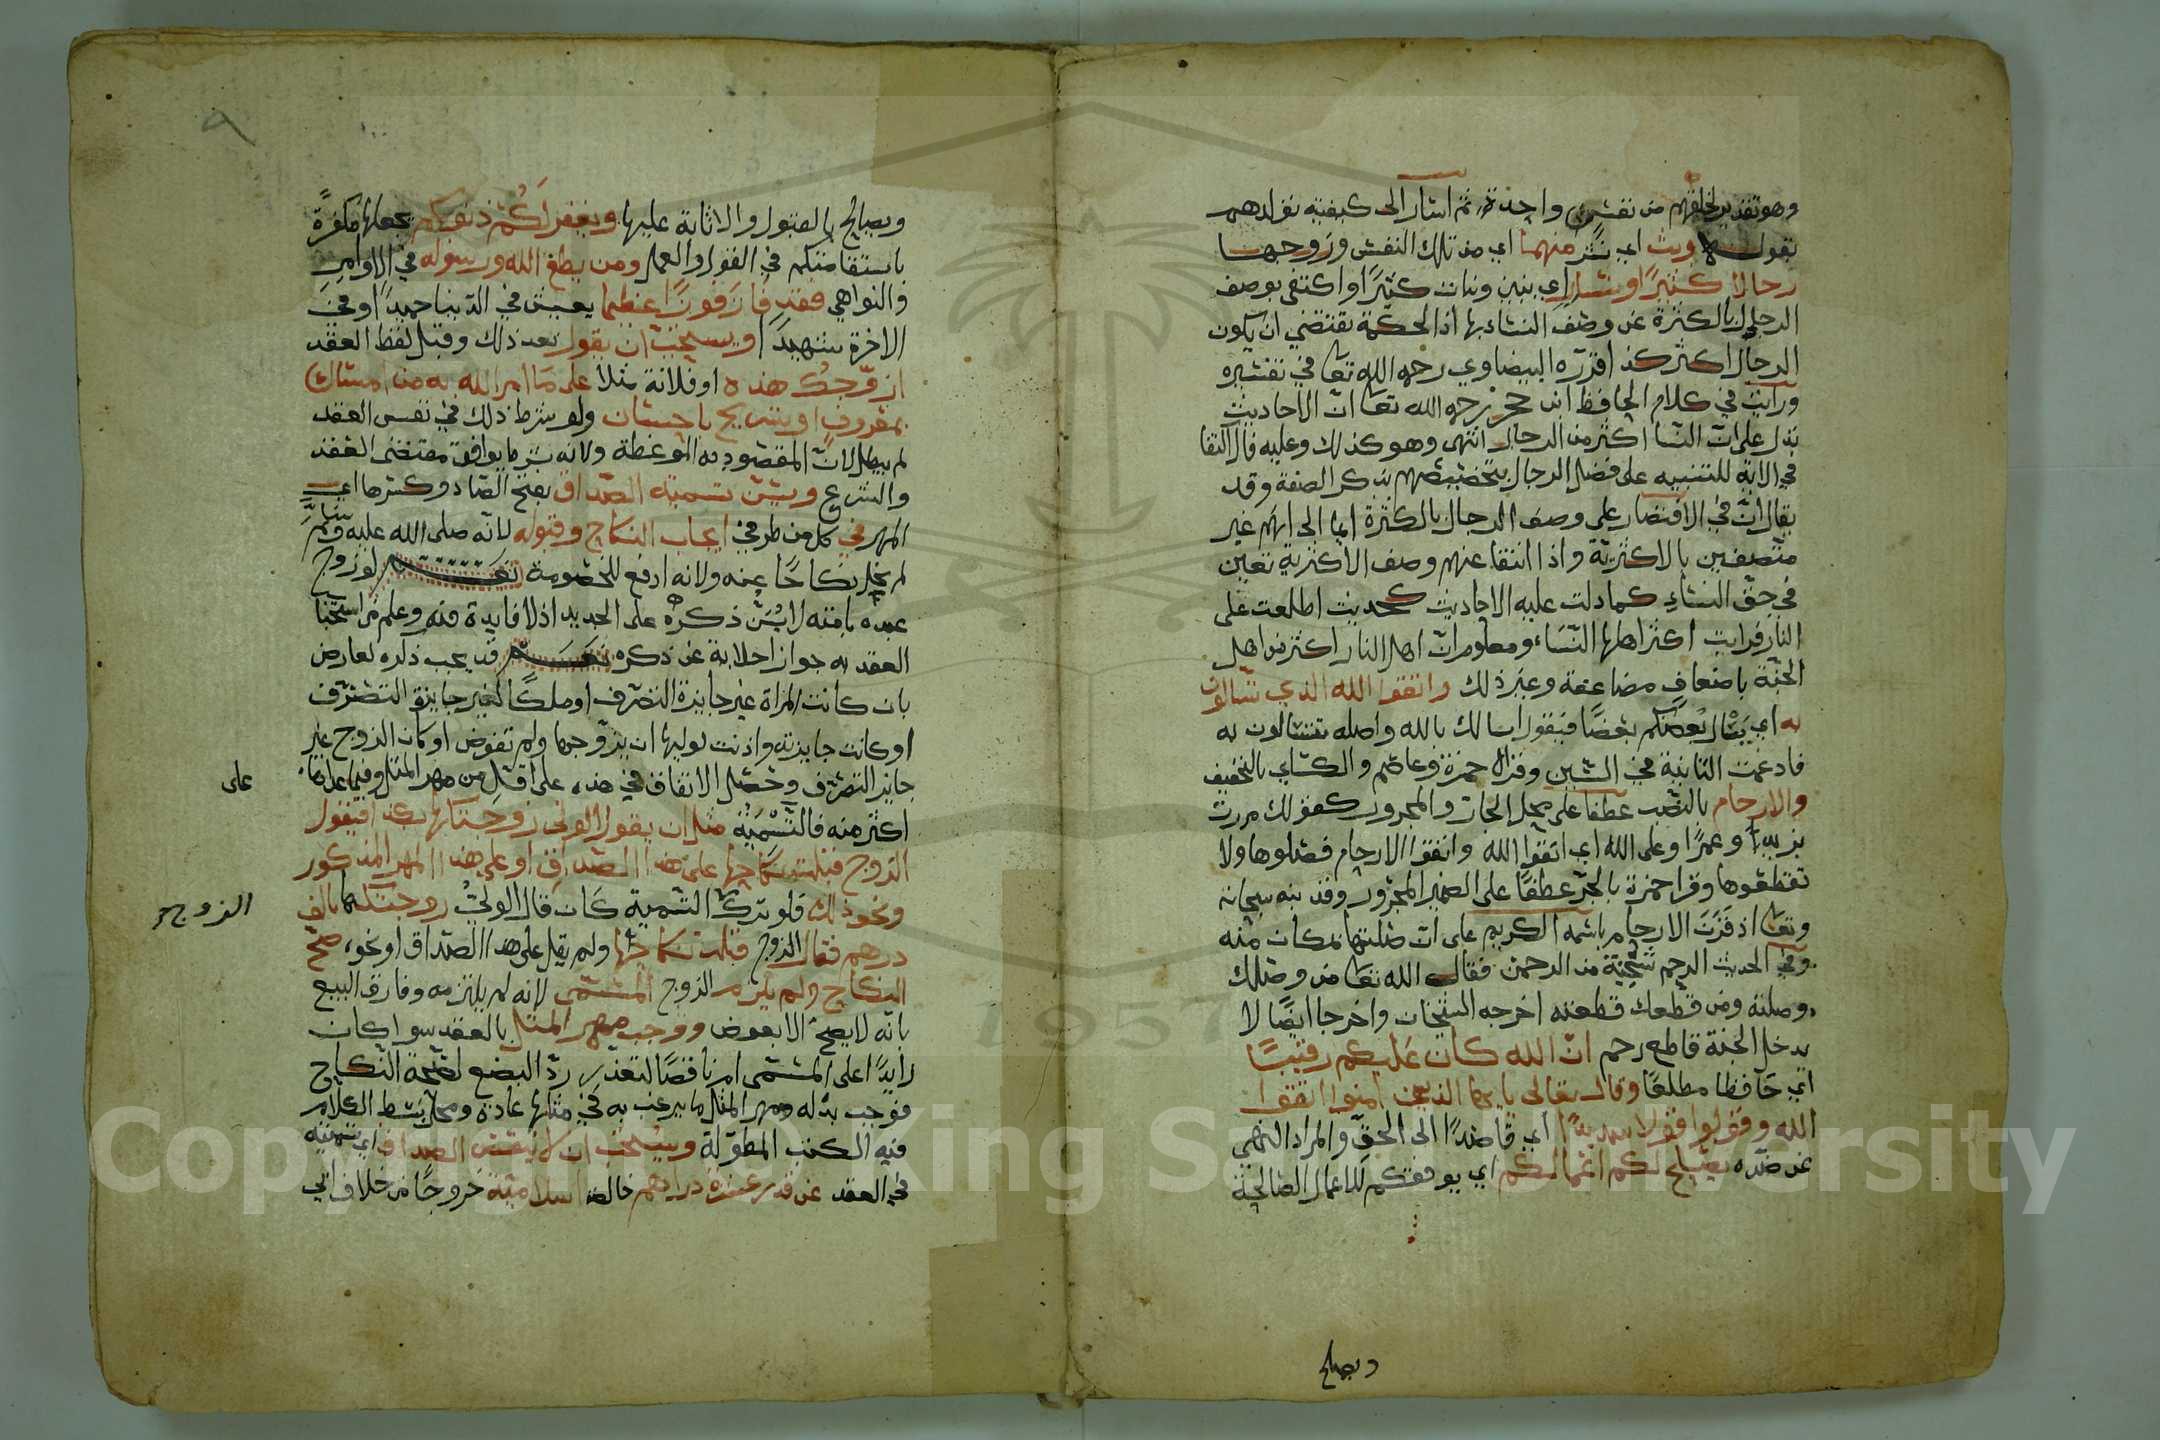 وهو تقدير لخلقهم من نفس واحدة ثم اشار الى كيفية تولدهم
بقوله وبث اي نشر منهما اي من تلك النفس وزوجها
رجالا كثيرا ونساء اي بنين وبنات كثيرا واكتفى بوصف
الرجال بالكثرة عن وصف النساء بها اذ الحكمة تقتضي ان يكون
الرجال اكثر كذا قرره البيضاوي رحمه الله تعا في تفسيره
ورايت في كلام الحافظ ابن حجر رحمه الله تعا ان الاحاديث
تدل على ان النسا اكثر من الرجال انتهى وهو كذلك وعليه فالاكتفا
في الاية للتنبيه على فضل الرجال بتخصيصهم بذكر الصفة وقد
يقال ان في الاقتصار على وصف الرجال بالكثرة ايما الى انهم غير
متصفين بالاكثرية واذا انتفا عنهم وصف الاكثرية تعين
في حق النساء كما دلت عليه الاحاديث كحديث اطلعت على
النار فرايت اكثر اهلها النساء ومعلوم ان اهل النار اكثر من اهل
الجنة باضعاف مضاعفة وغير ذلك واتقوا الله الذي تسالون
به اي يسال بعضكم بعضا فيقول اسالك بالله واصله تتسالون به
فادغمت الثانية في السين وقرا حمزة وعاصم والكساي بالتخفيف
والارحام بالنصب عطفا على محل الجار والمجرور كقولك مررت
بزيد وعمرا وعلى الله اي اتقوا الله واتقوا الارحام فصلوها ولا
تقطعوها وقرا حمزة بالجر عطفا على الضمير المجرور وقد نبه سبحانه
وتعا اذ قرن الارحام باسمه الكريم على ان صلتها بمكان منه
وفي الحديث الرحم شجنة من الرحمن فقال الله تعا من وصلك
وصلته ومن قطعك قطعته اخرجه الشيخان واخرجا ايضا لا
يدخل الجنة قاطع رحم ان الله كان عليكم رقيبا
اي حافظا مطلقا وقال تعالى يا ايها الذين امنوا اتقوا
الله وقولوا قولا سديدا اي قاصدا الى الحق والمراد النهي
عن ضده يصلح لكم اعمالكم اي يوفقكم للاعمال الصالحة
ويصلح
ويصالح بالقبول والاثابة عليها ويغفر لكم ذنوبكم بجعلها مكفرة
باستقامتكم في القول والعمل ومن يطع الله ورسوله في الاوامر
والنواهي فقد فاز فوزا عظيما يعيش في الدنيا حميدا وفي
الاخرة شهيدا ويستحب ان يقول بعد ذلك وقبل لفظ العقد
ازوجك هذه او فلانة مثلا على ما امر الله به من امساك
بمعروف او تسريح باحسان ولو شرط ذلك في نفس العقد
لم يبطل لان المقصود به الموعظة ولانه شرط يوافق مقتضى العقد
والشرع ويسن تسمية الصداق بفتح الصاد وكسرها اي
المهر في كل من طرفي ايجاب النكاح وقبوله لانه صلى الله عليه وسلم
لم يخل نكاحا عنه ولانه ادفع للخصومة نعم لو زوج
عبده بامته لا يسن ذكره على الجديد اذ لا فايدة فيه وعلم من استحبا
العقد به جواز اخلائه عن ذكره نعم قد يجب ذكره لعارض
بان كانت المراة غير جايزة التصرف او ملكا لغير جايز التصرف
او كانت جايزته واذنت لوليها ان يزوجها ولم تفوض او كان الزوج غير
جايز التصرف وحصل الاتفاق في هذه على اقل من مهر المثل وفيما عداها
على
اكثر منه فالتسمية مثل ان يقول الولي زوجتكها بكذا فيقول
الزوج قبلت نكاحها على هذا الصداق او على هذا المهر المذكور
ونحو ذلك فلو ترك التسمية كان قال الولي زوجتكها بالف
الزوج
درهم فقال الزوج قبلت نكاحها ولم يقل على هذا الصداق او نحوه صح
النكاح ولم يلزم الزوج المسمى لانه لم يلتزمه وفارق البيع
بانه لا يصح الا بعوض ووجب مهر المثل بالعقد سوا كان
زايدا على المسمى ام ناقصا لتعذر رد البضع لصحة النكاح
فوجب بدله ومهر المثل ما يرغب به في مثلها عادة ومحل بسط الكلام
فيه الكتب المطولة ويستحب ان لا ينقص الصداق اي تسميته
في العقد عن قدر عشرة دراهم خالصة اسلامية خروجا من خلاف ابي